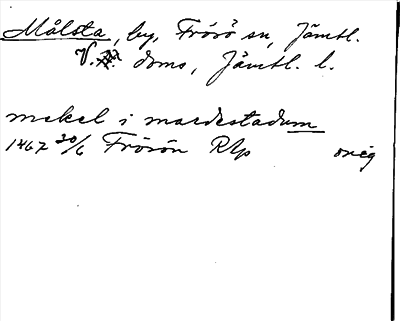 Målsta, by, Frösö sn, Jämtl.
V. doms, Jämtl. l.
mekel i mardestadum
1467 30/6 Frösön RAp orig